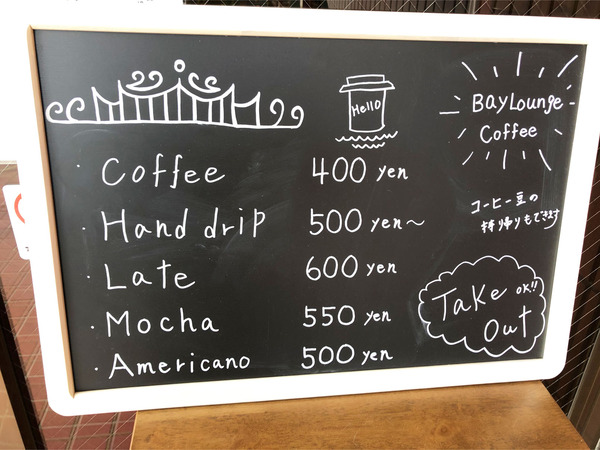 Hello
BayLounge
Coffee
Coffee 400 yen
Hand drip 500 yen～
Late 600 yen
Mocha 550 yen
Americano 500 yen
コーヒー豆の
持ち帰りもできます
Take OK!!
Out